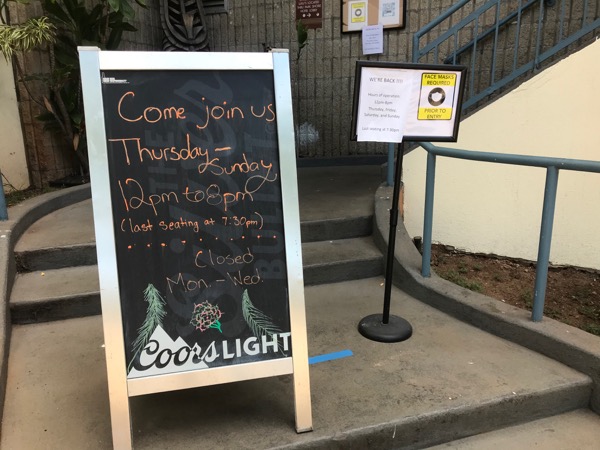 Come join us
Thursday –
Sunday
12pm to 8pm
(last seating at 7:30pm)
Closed
Mon. – Wed.
Coors LIGHT
WE'RE BACK
Hours of operation
12pm-8pm
Thursday, Friday,
Saturday, and Sunday
Last seating at 7:30pm
FACE MASKS
REQUIRED
PRIOR TO
ENTRY!